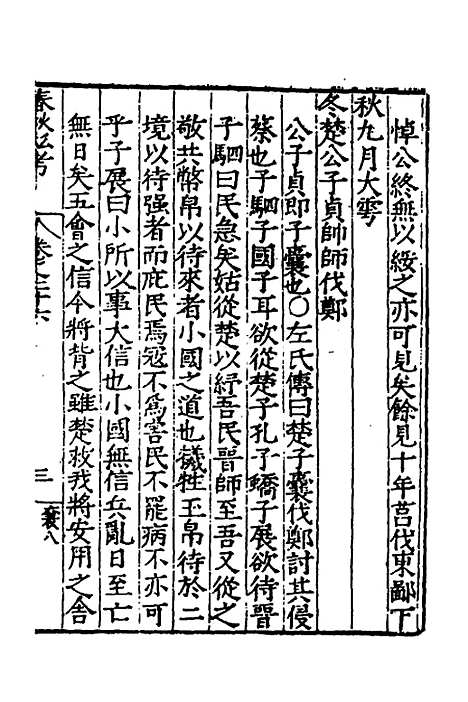 悼公終無以綏之亦可見矣餘見十年莒伐東鄙下
秋九月大雩
冬楚公子貞帥師伐鄭
公子貞即子囊也○左氏傳曰楚子囊伐鄭討其侵
蔡也子駟子國子耳欲從楚子孔子蟜子展欲待晉
子駟曰民急矣姑從楚以紓吾民晉師至吾又從之
敬共幣帛以待來者小國之道也犧牲玉帛待於二
境以待强者而庇民焉冦不爲害民不罷病不亦可
乎子展曰小所以事大信也小國無信兵亂日至亡
無日矣五會之信今將背之雖楚救我將安用之舍
春秋 考
卷之二十六
三
襄八